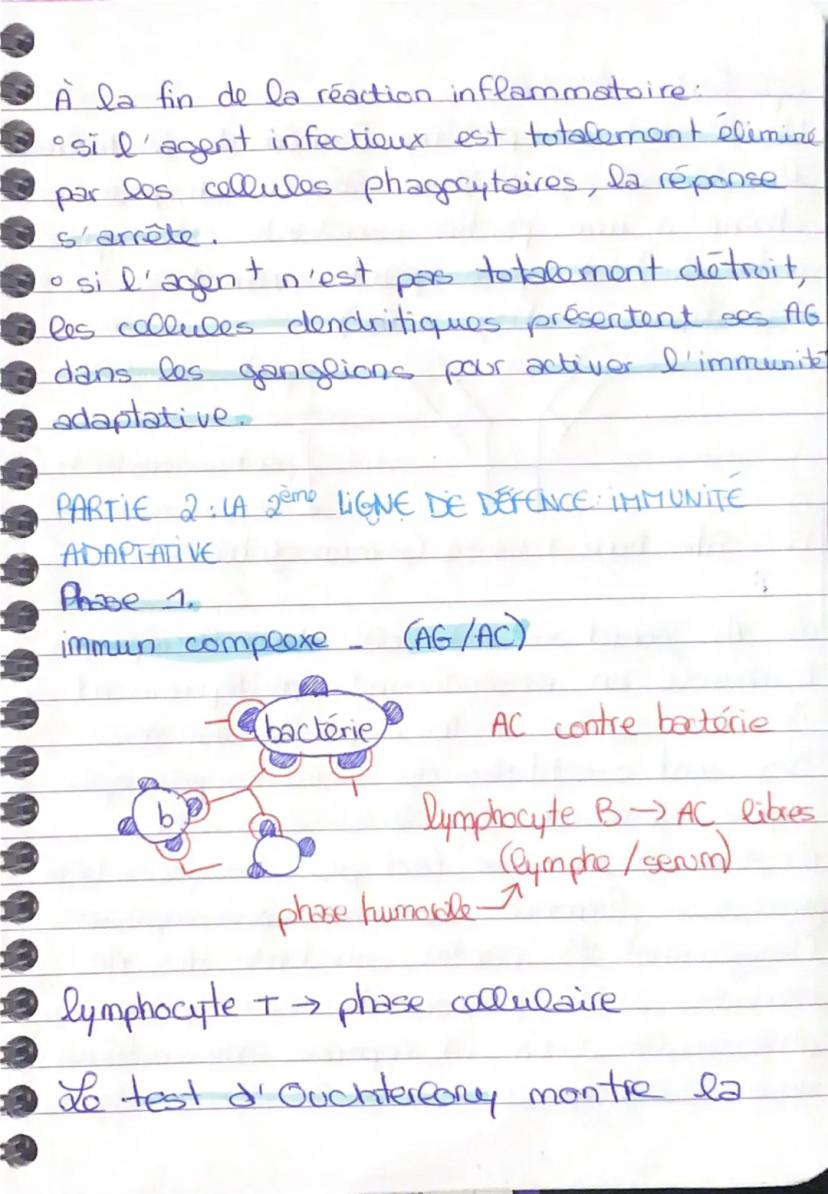 À la fin de la réaction inflammatoire:
° si l'agent infectieux est totalement éliminé
par les cellules phagocytaires, la réponse
s'arrête.
° si l'agent n'est pas totalement détroit,
les cellules dendritiques présentent ses AG
dans les ganglions pour activer l'immunité
adaptative.
PARTIE 2: LA 2ème LIGNE DE DÉFENCE: IMMUNITÉ
ADAPTATIVE
Phase 1.
immun complexe - (AG/AC)
bactérie
AC contre bactérie
b
lymphocyte B → AC libres
(lymphe / serum)
phase humorale
lymphocyte T → phase cellulaire
Le test d'Ouchterlony montre la